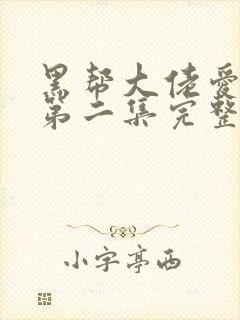 黑帮大佬爱
第二集完整
小字亭西